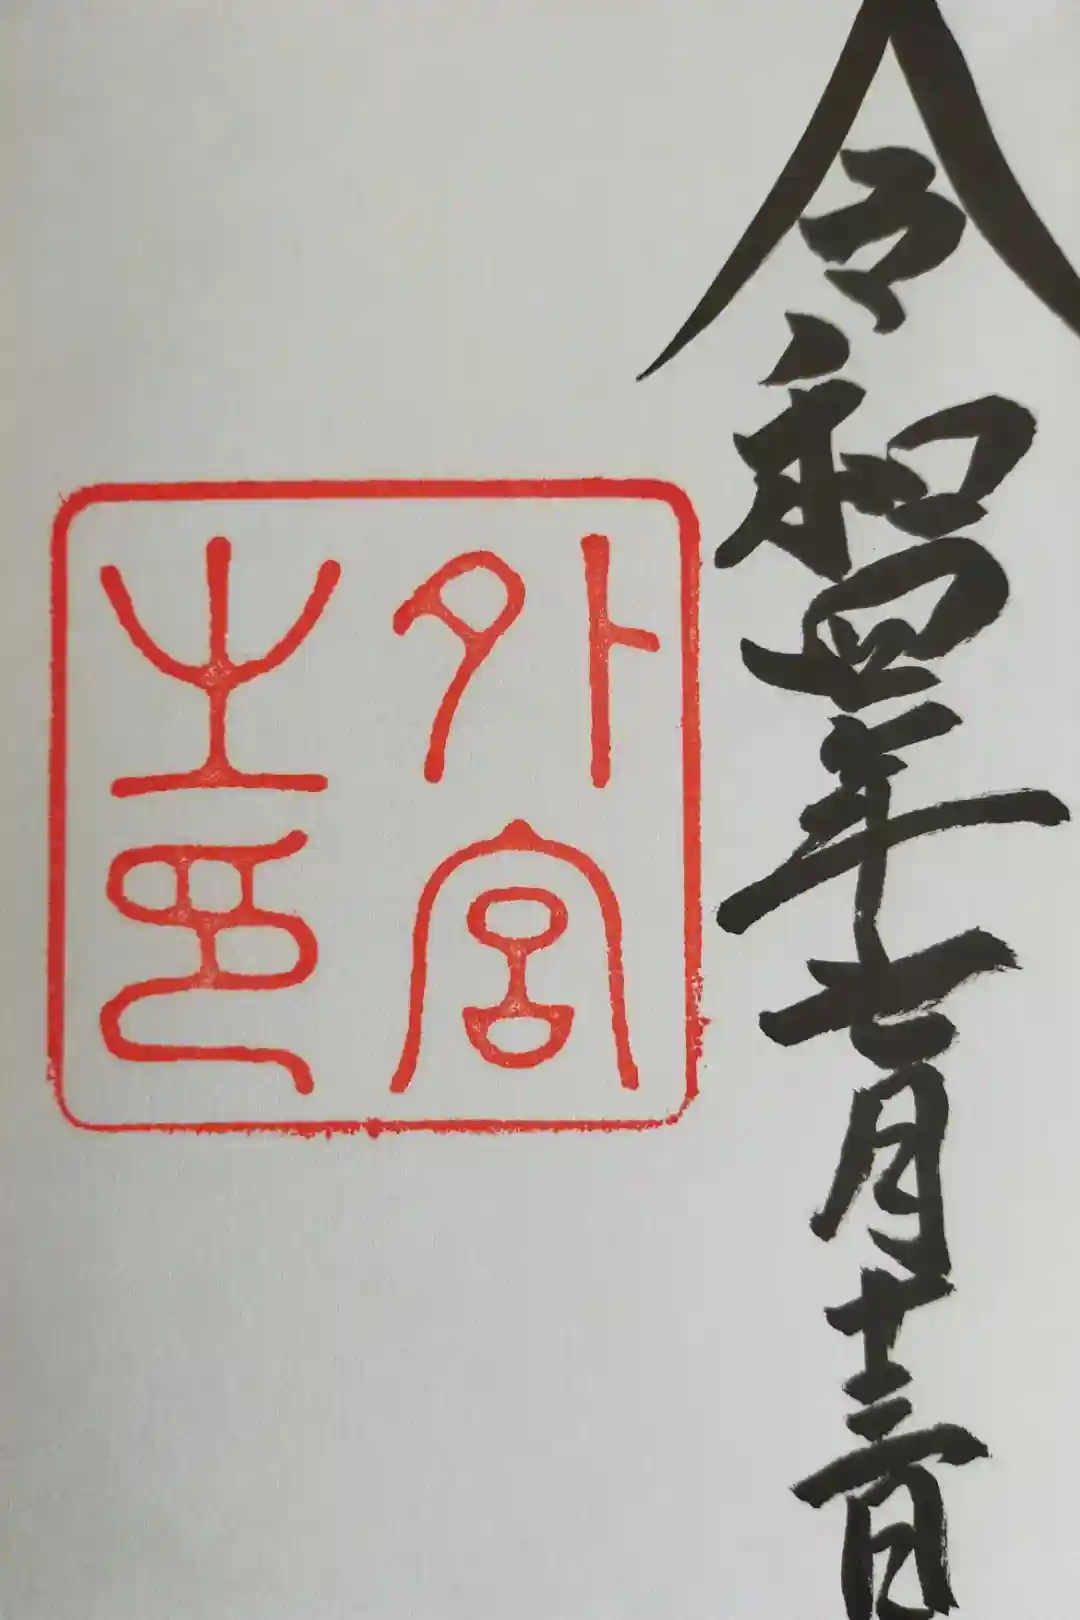 令和四年七月十三日
外宮
之印